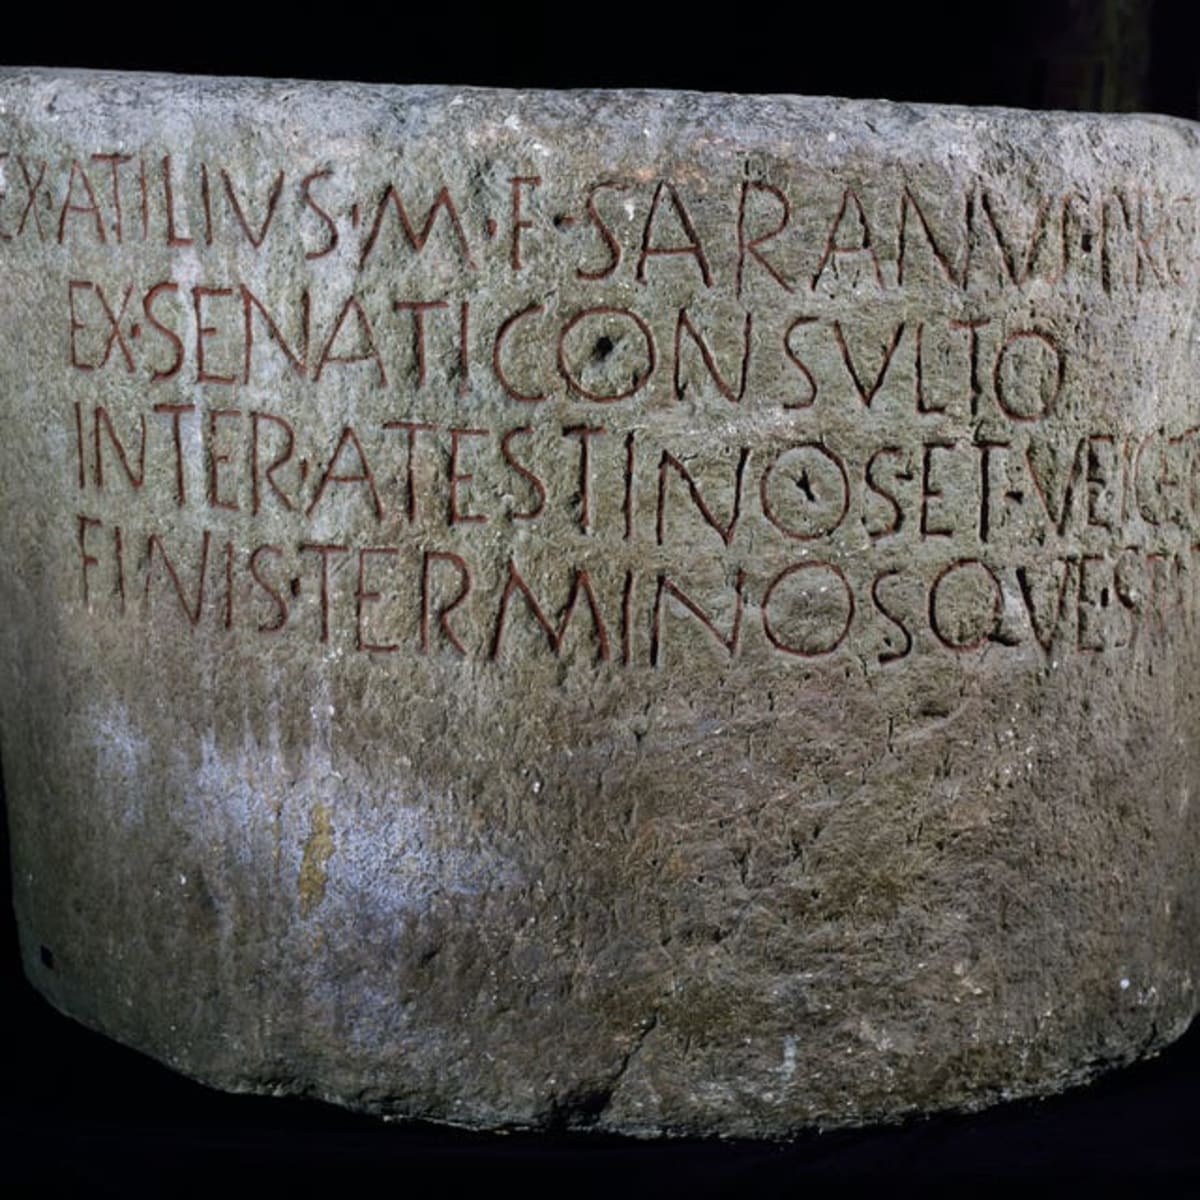 EX·ATILIVS·M·F·SARANVS·PR
EX·SENATI CONSVLTO
INTER·ATESTINOS·ET·VEICE
FINIS·TERMINOSQVE·ST